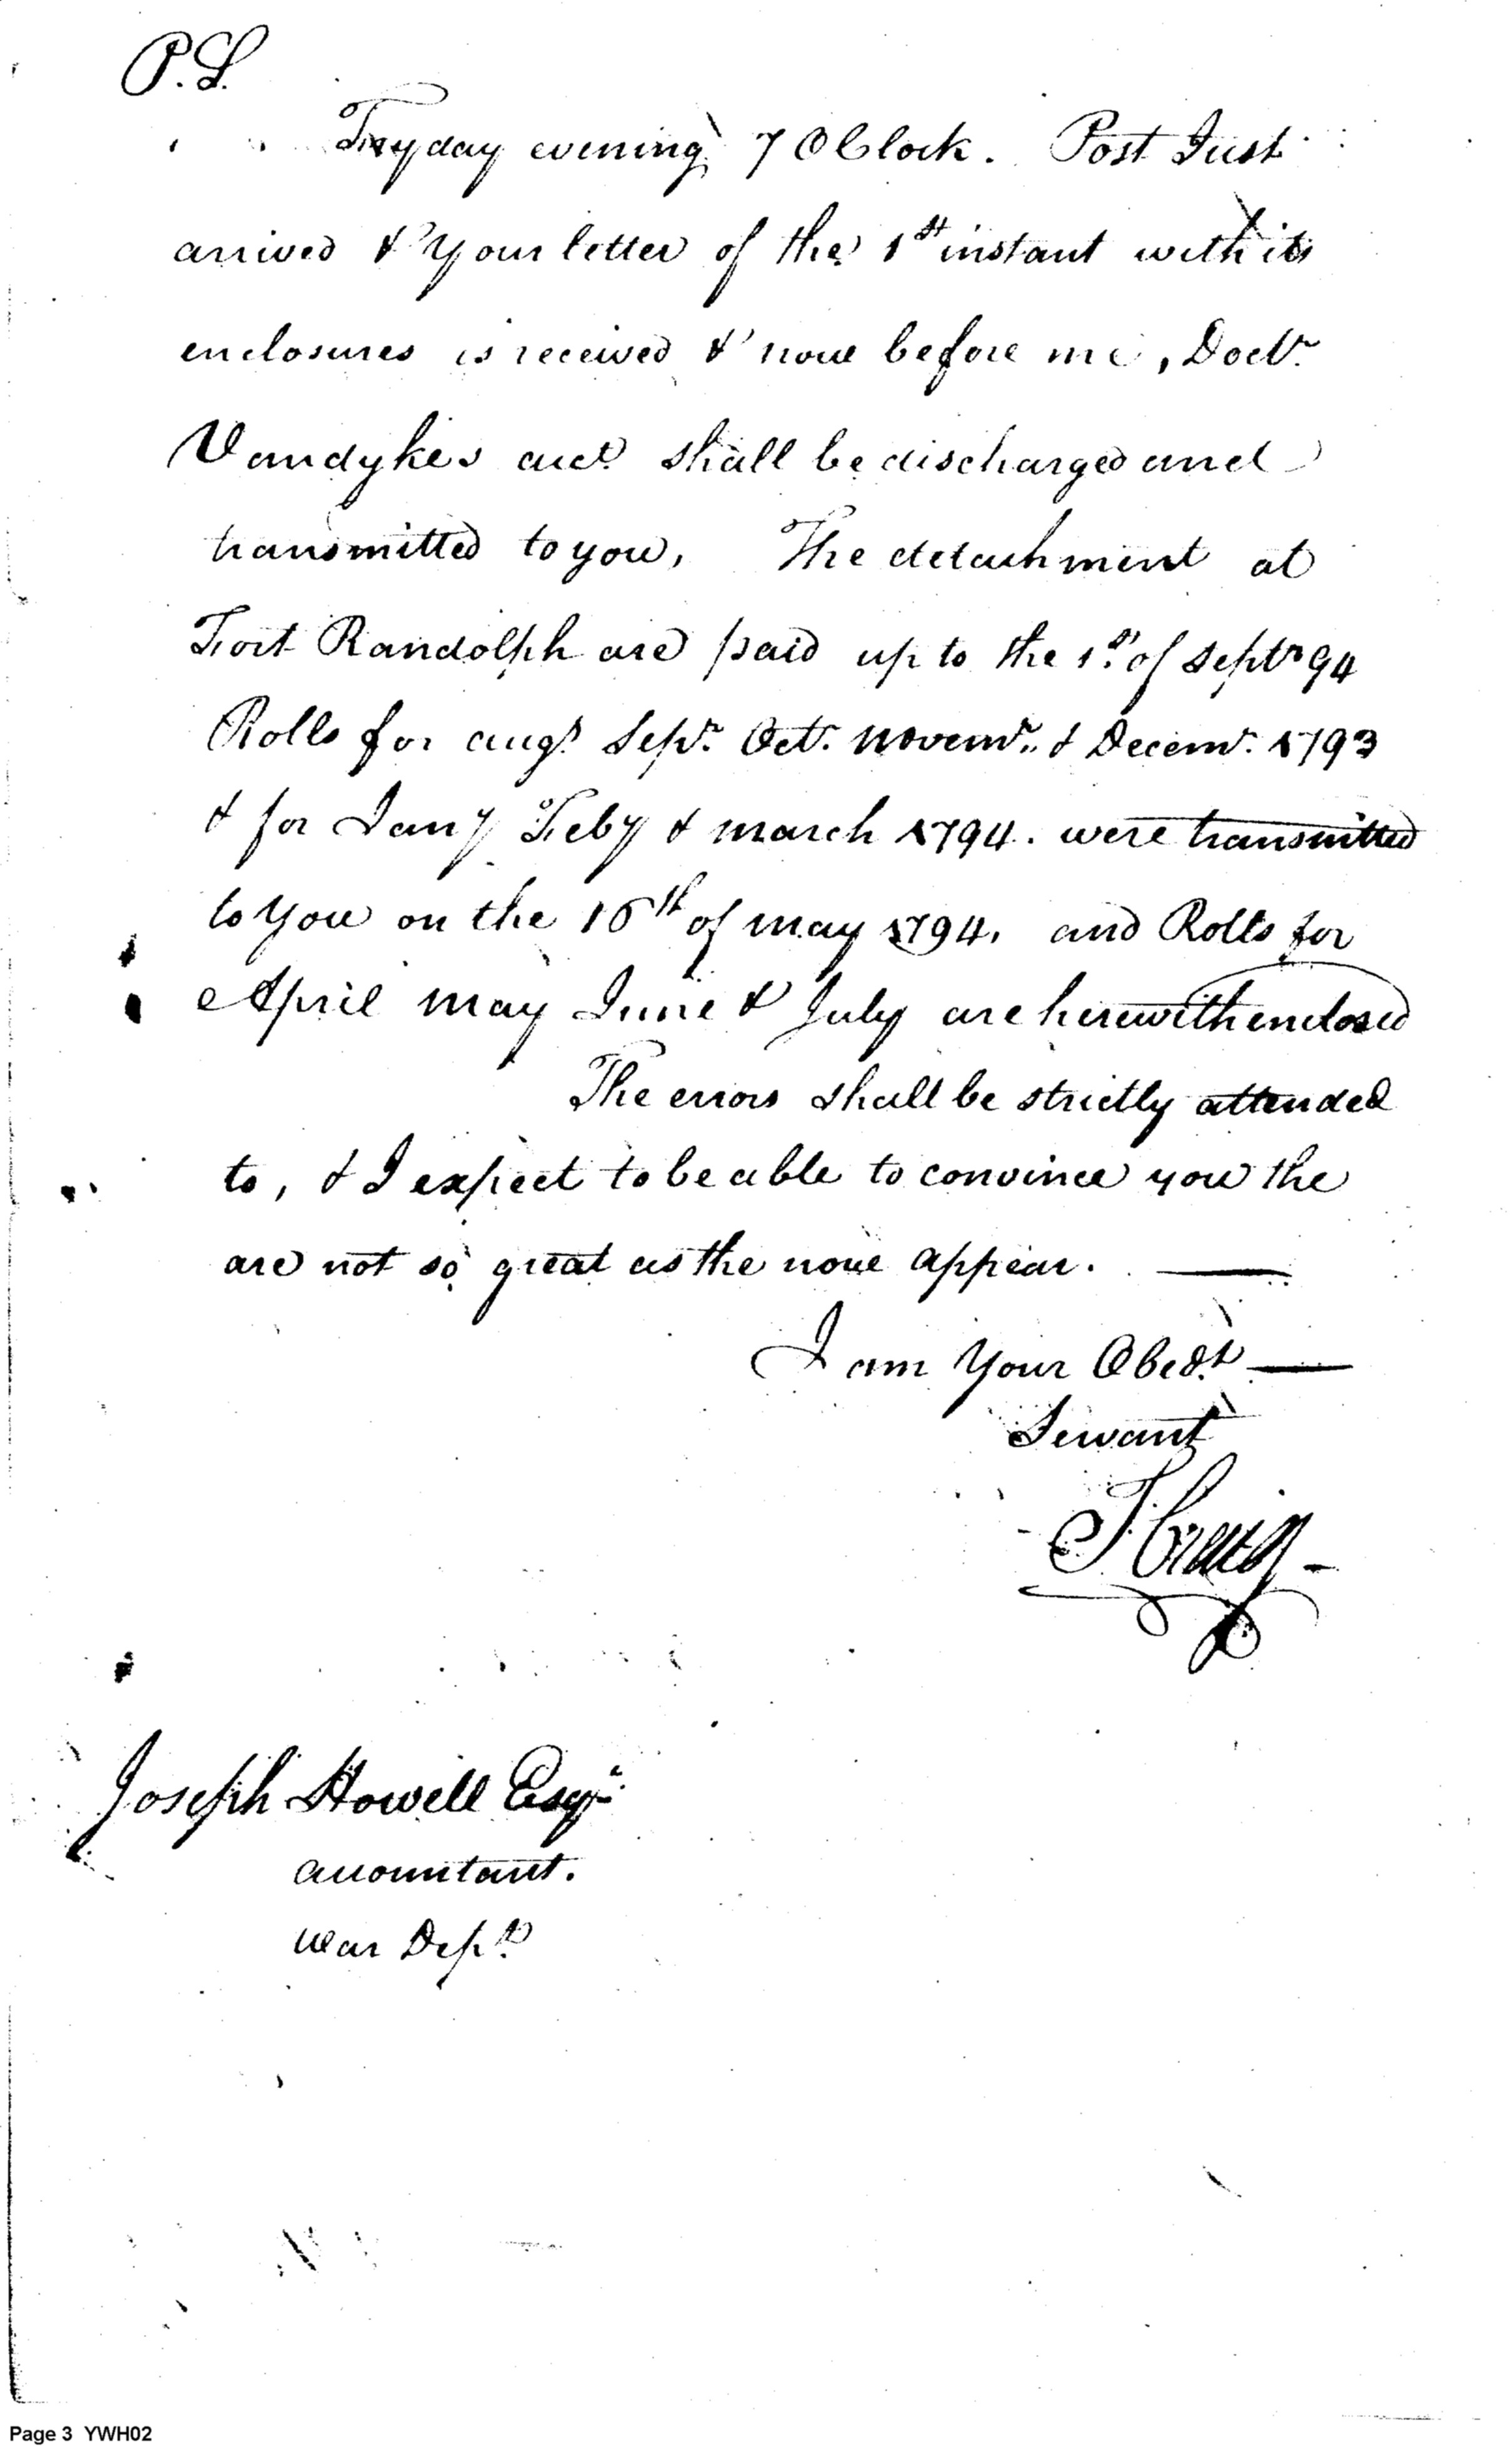 P.S.
Fryday evening 7 OClock. Post Just
arrived & Your letter of the 1st instant with its
enclosures is received & now before me, Doctr.
Vandykes acct. shall be discharged and
transmitted to you, The detachment at
Fort Randolph are paid up to the 1st. of Septr 94
Rolls for augt. Sepr. Octr. Novemr. & Decemr. 1793
& for Jany Feby & march 1794. were transmitted
to You on the 16th of may 1794. and Rolls for
April may June & July are herewith enclosed
The errors shall be strictly attended
to, & I expect to be able to convince you the
are not so great as the now appear.
I am Your Obedt.
Servant
I. Craig
Joseph Howell Esqr.
accountant.
War Dept.
Page 3 YWH02